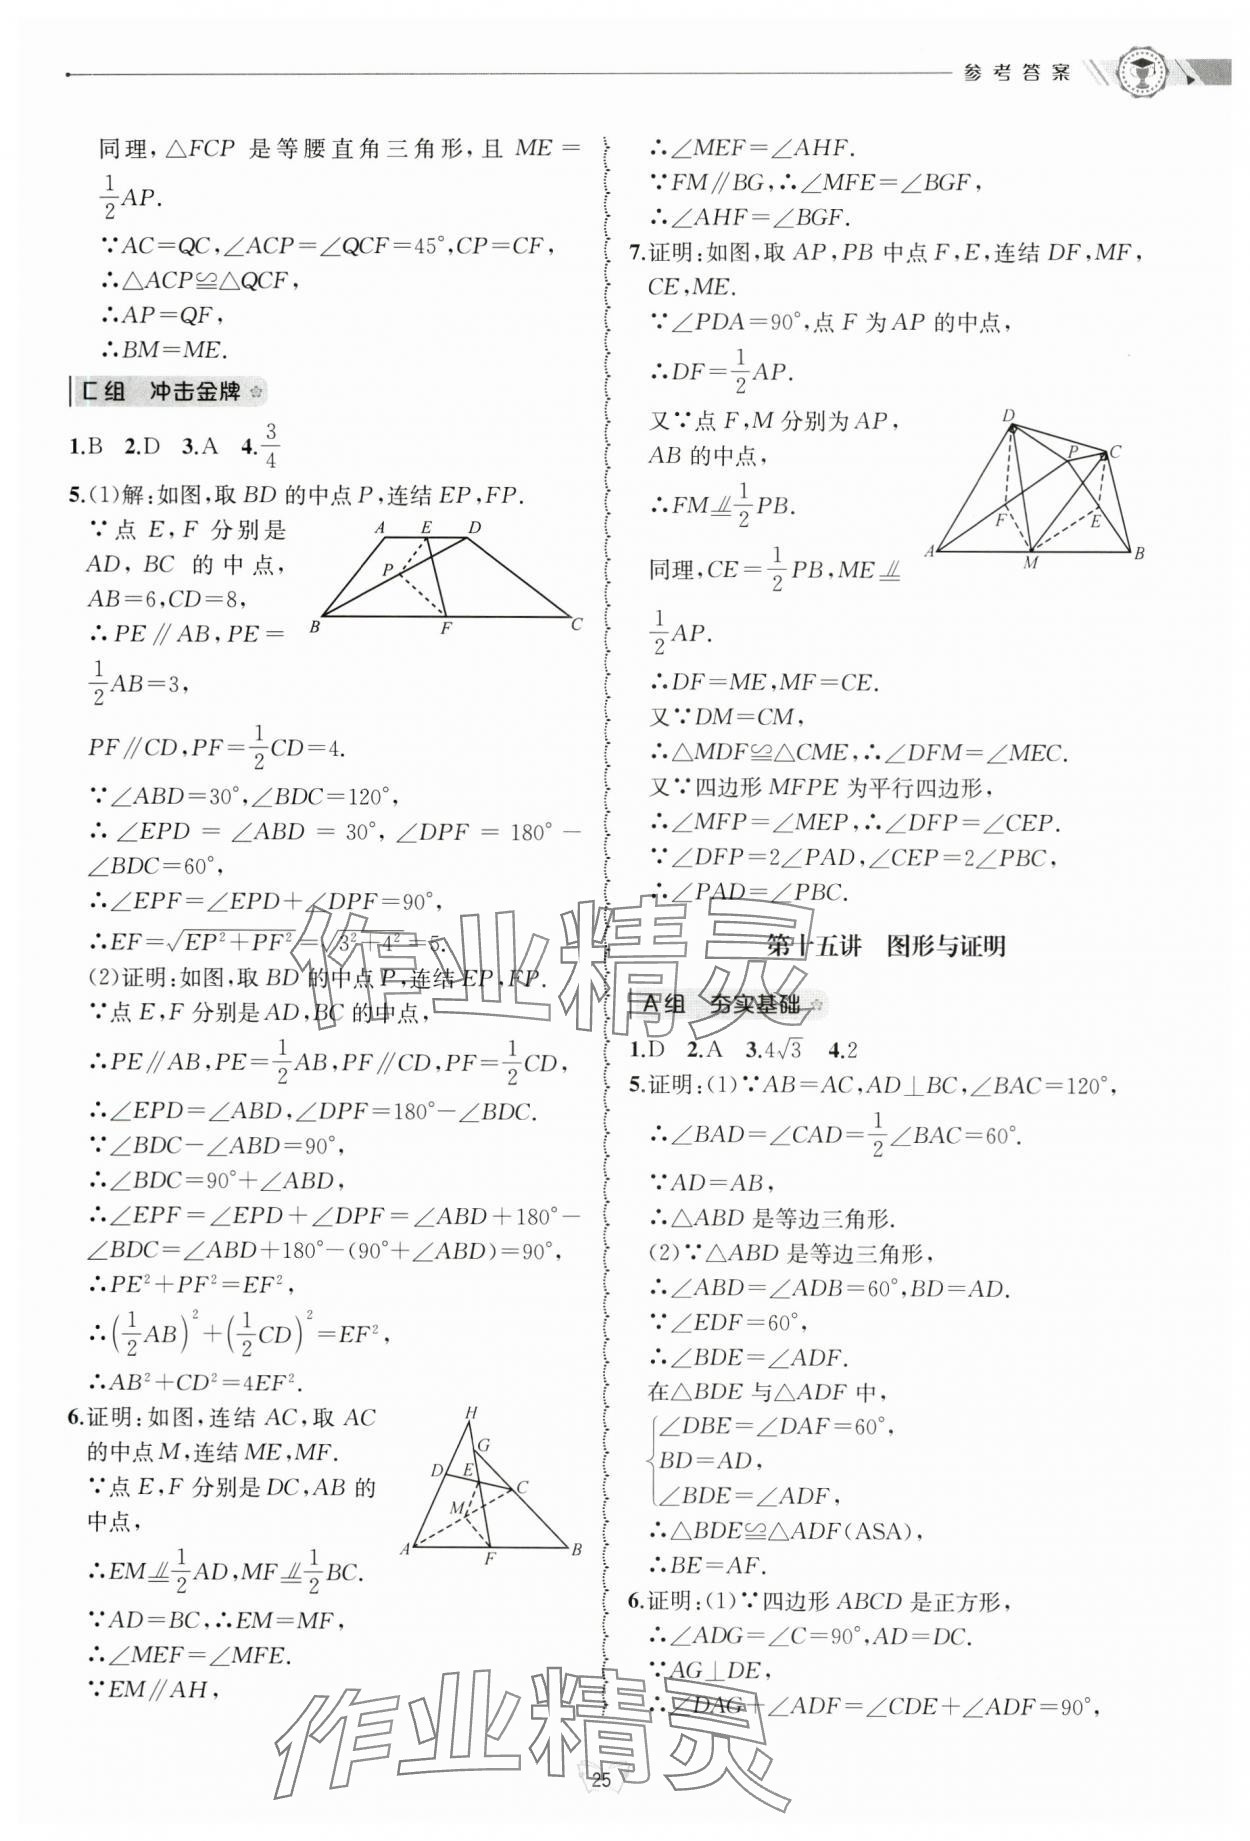 参考答案
同理,△FCP 是等腰直角三角形,且 ME=
1/2 AP.
∵AC=QC,∠ACP=∠QCF=45°,CP=CF,
∴△ACP≌△QCF,
∴AP=QF,
∴BM=ME.
C组 冲击金牌
1.B 2.D 3.A 4.3/4
5.(1)解:如图,取 BD 的中点 P,连结 EP,FP.
∵点 E,F 分别是
AD, BC 的中点,
AB=6,CD=8,
∴PE∥AB,PE=
1/2 AB=3,
A E D
P
B F C
PF∥CD,PF=1/2 CD=4.
∵∠ABD=30°,∠BDC=120°,
∴∠EPD=∠ABD=30°,∠DPF=180°-
∠BDC=60°,
∴∠EPF=∠EPD+∠DPF=90°,
∴EF=√(EP²+PF²)=√(3²+4²)=5.
(2)证明:如图,取 BD 的中点 P,连结 EP,FP.
∵点 E,F 分别是 AD,BC 的中点,
∴PE∥AB,PE=1/2 AB,PF∥CD,PF=1/2 CD,
∴∠EPD=∠ABD,∠DPF=180°-∠BDC.
∵∠BDC-∠ABD=90°,
∴∠BDC=90°+∠ABD,
∴∠EPF=∠EPD+∠DPF=∠ABD+180°-
∠BDC=∠ABD+180°-(90°+∠ABD)=90°,
∴PE²+PF²=EF²,
∴(1/2 AB)²+(1/2 CD)²=EF²,
∴AB²+CD²=4EF².
6.证明:如图,连结 AC,取 AC
的中点 M,连结 ME,MF.
∵点 E,F 分别是 DC,AB 的
中点,
H
G
D E
C
M
A F B
∴EM⫽1/2 AD,MF⫽1/2 BC.
∵AD=BC,∴EM=MF,
∴∠MEF=∠MFE.
∵EM∥AH,
∴∠MEF=∠AHF.
∵FM∥BG,∴∠MFE=∠BGF,
∴∠AHF=∠BGF.
7.证明:如图,取 AP,PB 中点 F,E,连结 DF,MF,
CE,ME.
∵∠PDA=90°,点 F 为 AP 的中点,
∴DF=1/2 AP.
又∵点 F,M 分别为 AP,
AB 的中点,
∴FM⫽1/2 PB.
同理,CE=1/2 PB,ME⫽
1/2 AP.
D
P C
F E
A M B
∴DF=ME,MF=CE.
又∵DM=CM,
∴△MDF≌△CME,∴∠DFM=∠MEC.
又∵四边形 MFPE 为平行四边形,
∴∠MFP=∠MEP,∴∠DFP=∠CEP.
∵∠DFP=2∠PAD,∠CEP=2∠PBC,
∴∠PAD=∠PBC.
第十五讲 图形与证明
A组 夯实基础
1.D 2.A 3.4√3 4.2
5.证明:(1)∵AB=AC,AD⊥BC,∠BAC=120°,
∴∠BAD=∠CAD=1/2∠BAC=60°.
∵AD=AB,
∴△ABD 是等边三角形.
(2)∵△ABD 是等边三角形,
∴∠ABD=∠ADB=60°,BD=AD.
∵∠EDF=60°,
∴∠BDE=∠ADF.
在△BDE 与△ADF 中,
{∠DBE=∠DAF=60°,
BD=AD,
∠BDE=∠ADF,
∴△BDE≌△ADF(ASA),
∴BE=AF.
6.证明:(1)∵四边形 ABCD 是正方形,
∴∠ADG=∠C=90°,AD=DC.
∵AG⊥DE,
∴∠DAG+∠ADF=∠CDE+∠ADF=90°,
25
作业精灵
作业精灵